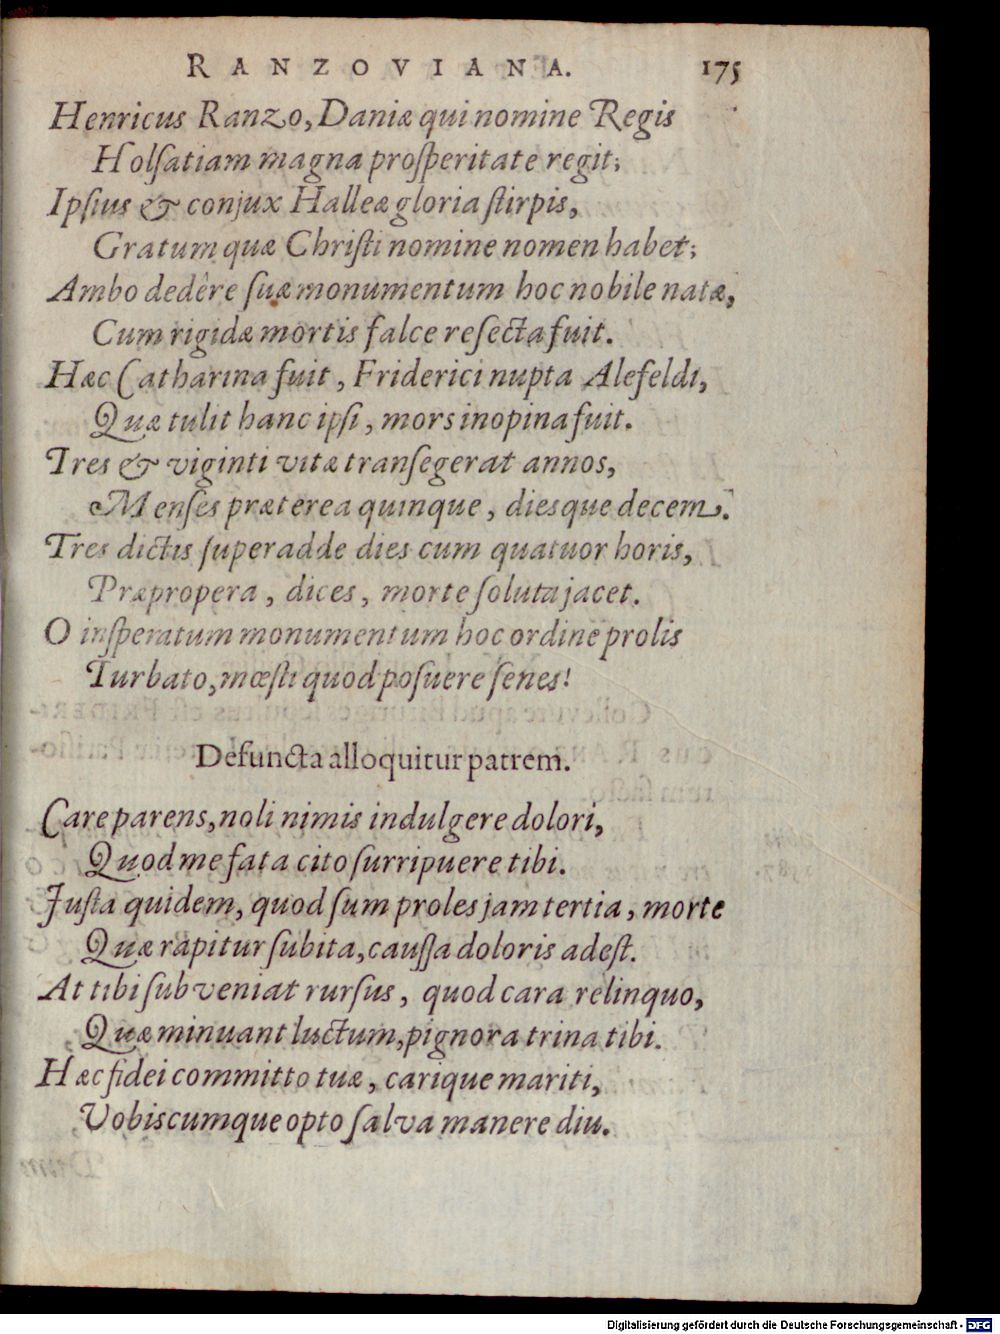 RANZOVIANA. 175
Henricus Ranzo, Daniæ qui nomine Regis
Holſatiam magna proſperitate regit;
Ipſius & conjux Halleæ gloria ſtirpis,
Gratum quæ Chriſti nomine nomen habet;
Ambo dedêre ſuæ monumentum hoc nobile natæ,
Cum rigidæ mortis falce reſecta fuit.
Hæc Catharina fuit, Friderici nupta Alefeldi,
Quæ tulit hanc ipſi, mors inopina fuit.
Tres & viginti vitæ tranſegerat annos,
Menſes præterea quinque, diesque decem.
Tres dictis ſuperadde dies cum quatuor horis,
Præpropera, dices, morte ſoluta jacet.
O inſperatum monumentum hoc ordine prolis
Turbato, mœſti quod poſuere ſenes!
Defuncta alloquitur patrem.
Care parens, noli nimis indulgere dolori,
Quod me fata cito ſurripuere tibi.
Juſta quidem, quod ſum proles jam tertia, morte
Quæ rapitur ſubita, cauſſa doloris adeſt.
At tibi ſubveniat rurſus, quod cara relinquo,
Quæ minuant luctum, pignora trina tibi.
Hæc fidei committo tuæ, carique mariti,
Vobiscumque opto ſalva manere diu.
Digitalisierung gefördert durch die Deutsche Forschungsgemeinschaft - DFG